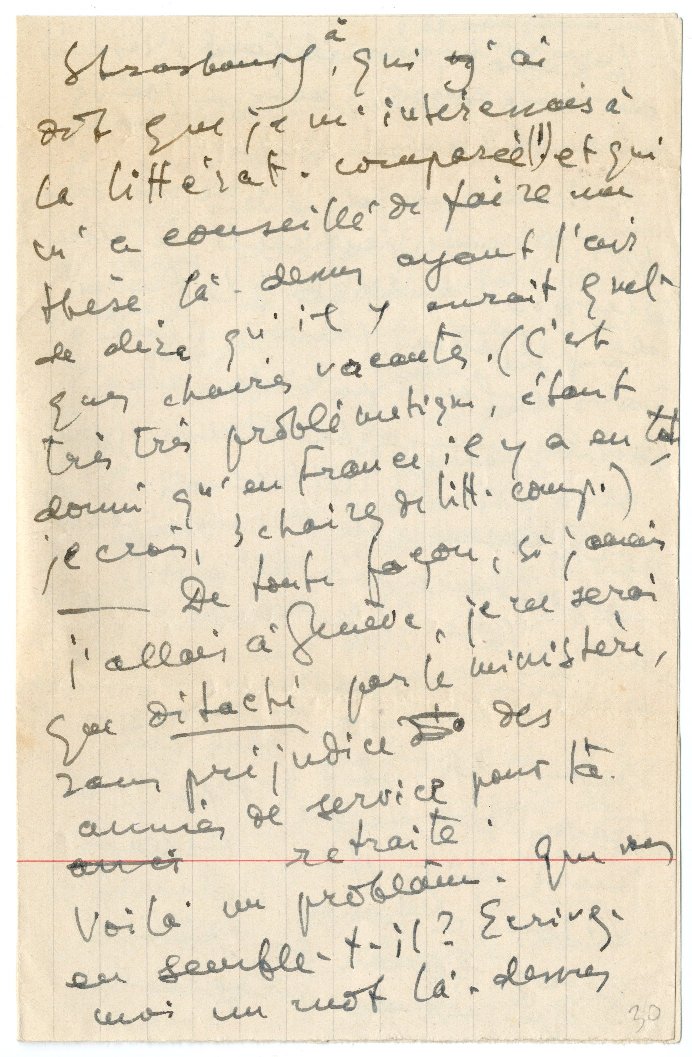 Strasbourg, à qui j'ai
dit que je m'intéressais à
la littérat. comparée (!) et qui
m'a conseillé de faire une
thèse là-dessus ayant l'air
de dire qu'il y aurait quel-
ques chaires vacantes. (C'est
très très problématique, étant
donné qu'en France il y a en tt
je crois, 3 chaires de litt. comp.)
— De toute façon, si jamais
j'allais à Genève, je ne serai
que détaché par le ministère,
sans préjudice des
années de service pour la
retraite.
Voilà un problème. Que vous
en semble-t-il? Ecrivez-
moi un mot là-dessus
30